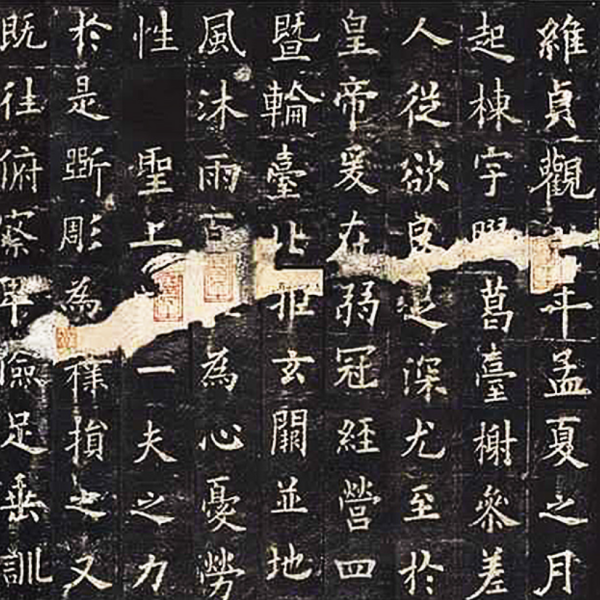 維貞觀年孟夏之月
起棟宇葛臺榭參差
人從欲良足深尤至於
皇帝爰在弱冠經營四
暨輪臺北拒玄闕並地
風沐雨百為心憂勞
性聖上一夫之力
於是斲彫為樸損之又
既往俯察卑儉足垂訓